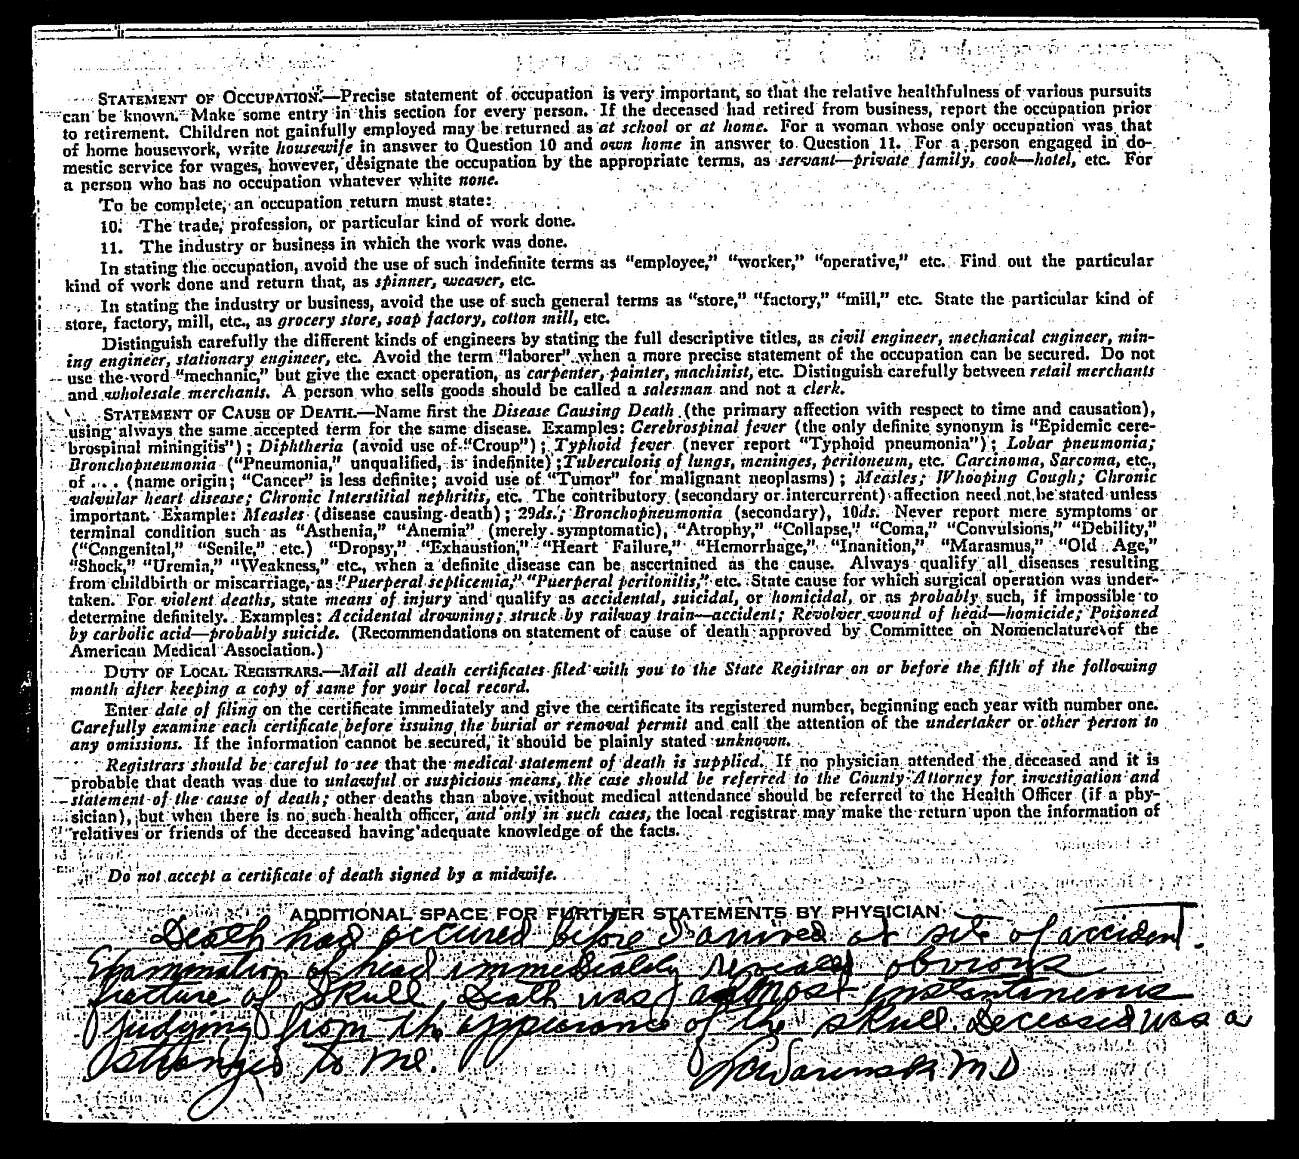 STATEMENT OF OCCUPATION.—Precise statement of occupation is very important, so that the relative healthfulness of various pursuits
can be known. Make some entry in this section for every person. If the deceased had retired from business, report the occupation prior
to retirement. Children not gainfully employed may be returned as at school or at home. For a woman whose only occupation was that
of home housework, write housewife in answer to Question 10 and own home in answer to Question 11. For a person engaged in do-
mestic service for wages, however, designate the occupation by the appropriate terms, as servant—private family, cook—hotel, etc. For
a person who has no occupation whatever white none.
To be complete, an occupation return must state:
10. The trade, profession, or particular kind of work done.
11. The industry or business in which the work was done.
In stating the occupation, avoid the use of such indefinite terms as "employee," "worker," "operative," etc. Find out the particular
kind of work done and return that, as spinner, weaver, etc.
In stating the industry or business, avoid the use of such general terms as "store," "factory," "mill," etc. State the particular kind of
store, factory, mill, etc., as grocery store, soap factory, cotton mill, etc.
Distinguish carefully the different kinds of engineers by stating the full descriptive titles, as civil engineer, mechanical engineer, min-
ing engineer, stationary engineer, etc. Avoid the term "laborer" when a more precise statement of the occupation can be secured. Do not
use the word "mechanic," but give the exact operation, as carpenter, painter, machinist, etc. Distinguish carefully between retail merchants
and wholesale merchants. A person who sells goods should be called a salesman and not a clerk.
STATEMENT OF CAUSE OF DEATH.—Name first the Disease Causing Death (the primary affection with respect to time and causation),
using always the same accepted term for the same disease. Examples: Cerebrospinal fever (the only definite synonym is "Epidemic cere-
brospinal miningitis"); Diphtheria (avoid use of "Croup"); Typhoid fever (never report "Typhoid pneumonia"); Lobar pneumonia;
Bronchopneumonia ("Pneumonia," unqualified, is indefinite); Tuberculosis of lungs, meninges, peritoneum, etc. Carcinoma, Sarcoma, etc.,
of .... (name origin; "Cancer" is less definite; avoid use of "Tumor" for malignant neoplasms); Measles; Whooping Cough; Chronic
valvular heart disease; Chronic Interstitial nephritis, etc. The contributory (secondary or intercurrent) affection need not be stated unless
important. Example: Measles (disease causing death); 29ds.; Bronchopneumonia (secondary), 10ds. Never report mere symptoms or
terminal condition such as "Asthenia," "Anemia" (merely symptomatic), "Atrophy," "Collapse," "Coma," "Convulsions," "Debility,"
("Congenital," "Senile," etc.) "Dropsy," "Exhaustion," "Heart Failure," "Hemorrhage," "Inanition," "Marasmus," "Old Age,"
"Shock," "Uremia," "Weakness," etc., when a definite disease can be ascertained as the cause. Always qualify all diseases resulting
from childbirth or miscarriage, as "Puerperal septicemia," "Puerperal peritonitis," etc. State cause for which surgical operation was under-
taken. For violent deaths, state means of injury and qualify as accidental, suicidal, or homicidal, or as probably such, if impossible to
determine definitely. Examples: Accidental drowning; struck by railway train—accident; Revolver wound of head—homicide; Poisoned
by carbolic acid—probably suicide. (Recommendations on statement of cause of death approved by Committee on Nomenclature of the
American Medical Association.)
DUTY OF LOCAL REGISTRARS.—Mail all death certificates filed with you to the State Registrar on or before the fifth of the following
month after keeping a copy of same for your local record.
Enter date of filing on the certificate immediately and give the certificate its registered number, beginning each year with number one.
Carefully examine each certificate before issuing the burial or removal permit and call the attention of the undertaker or other person to
any omissions. If the information cannot be secured, it should be plainly stated unknown.
Registrars should be careful to see that the medical statement of death is supplied. If no physician attended the deceased and it is
probable that death was due to unlawful or suspicious means, the case should be referred to the County Attorney for investigation and
statement of the cause of death; other deaths than above without medical attendance should be referred to the Health Officer (if a phy-
sician), but when there is no such health officer, and only in such cases, the local registrar may make the return upon the information of
relatives or friends of the deceased having adequate knowledge of the facts.
Do not accept a certificate of death signed by a midwife.
ADDITIONAL SPACE FOR FURTHER STATEMENTS BY PHYSICIAN
Death had occured before I arrived at site of accident.
Examination of head immediately revealed obvious
fracture of skull. Death was almost instantaneous
judging from the appearance of the skull. Deceased was a
stranger to me.
MD